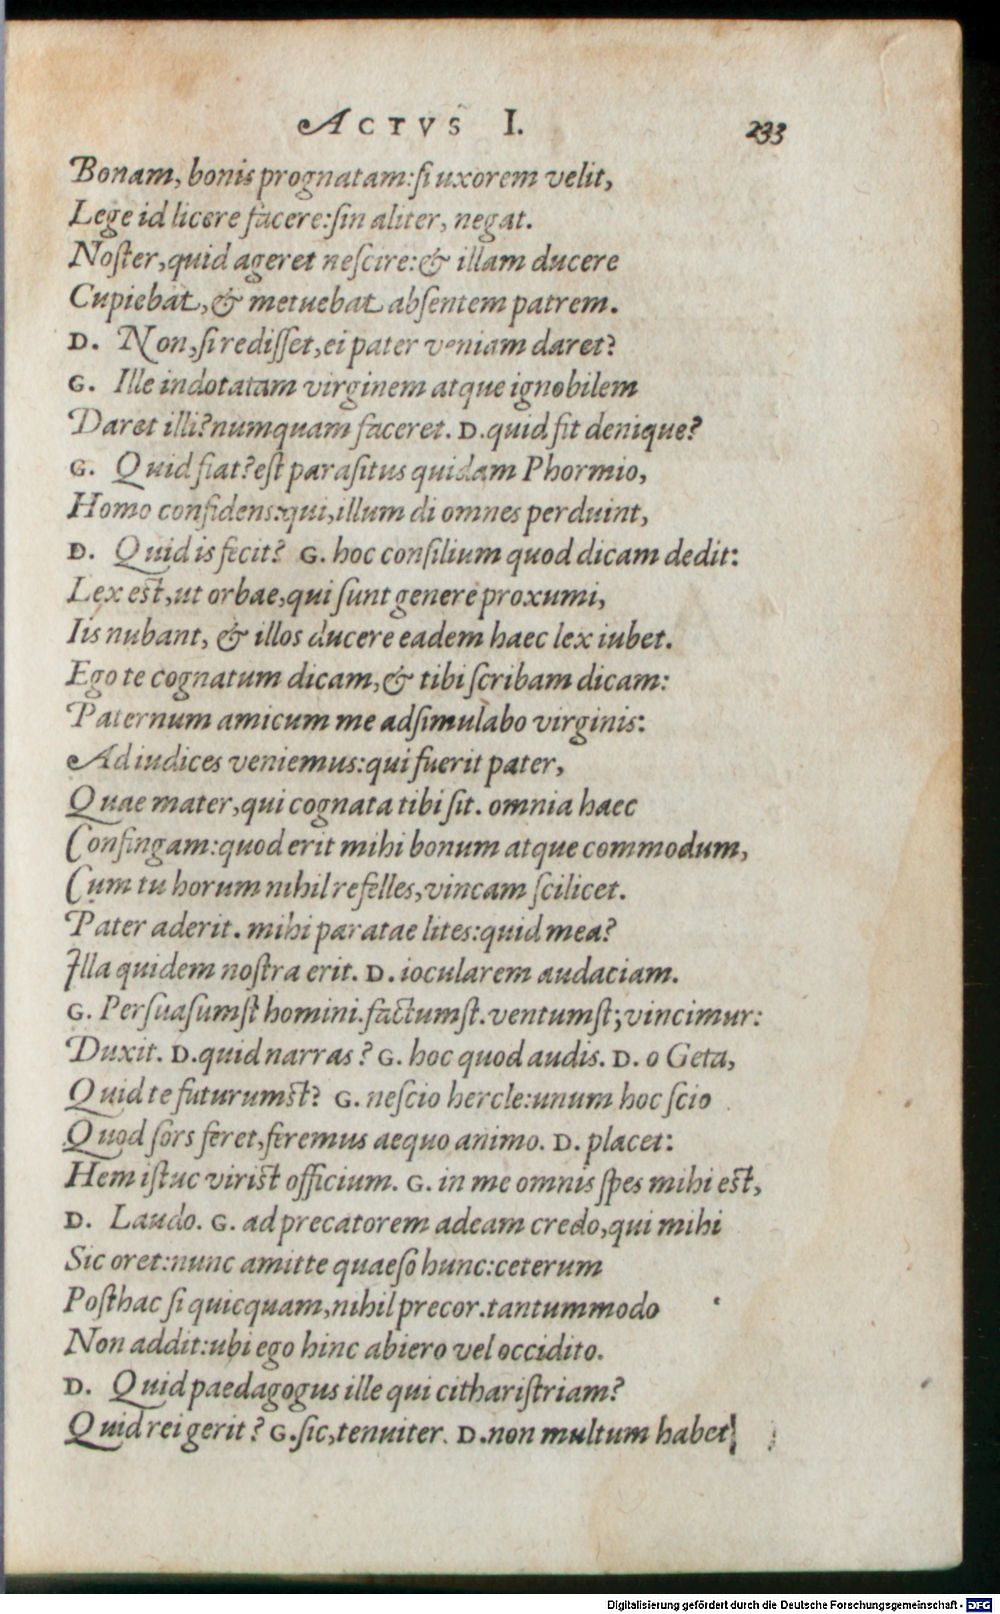 ACTVS I. 233
Bonam, bonis prognatam: si uxorem velit,
Lege id licere facere: sin aliter, negat.
Noster, quid ageret nescire: & illam ducere
Cupiebat, & metuebat absentem patrem.
D. Non, si redisset, ei pater veniam daret?
G. Ille indotatam virginem atque ignobilem
Daret illi? numquam faceret. D. quid fit denique?
G. Quid fiat? est parasitus quidam Phormio,
Homo confidens: qui, illum di omnes perduint,
D. Quid is fecit? G. hoc consilium quod dicam dedit:
Lex est, ut orbae, qui sunt genere proxumi,
Iis nubant, & illos ducere eadem haec lex iubet.
Ego te cognatum dicam, & tibi scribam dicam:
Paternum amicum me adsimulabo virginis:
Ad iudices veniemus: qui fuerit pater,
Quae mater, qui cognata tibi sit. omnia haec
Confingam: quod erit mihi bonum atque commodum,
Cum tu horum nihil refelles, vincam scilicet.
Pater aderit. mihi paratae lites: quid mea?
Illa quidem nostra erit. D. iocularem audaciam.
G. Persuasumst homini. factumst. ventumst; vincimur:
Duxit. D. quid narras? G. hoc quod audis. D. o Geta,
Quid te futurumst? G. nescio hercle: unum hoc scio
Quod fors feret, feremus aequo animo. D. placet:
Hem istuc virist officium. G. in me omnis spes mihi est,
D. Laudo. G. ad precatorem adeam credo, qui mihi
Sic oret: nunc amitte quaeso hunc: ceterum
Posthac si quicquam, nihil precor. tantummodo
Non addit: ubi ego hinc abiero vel occidito.
D. Quid paedagogus ille qui citharistriam?
Quid rei gerit? G. sic, tenuiter. D. non multum habet
Digitalisierung gefördert durch die Deutsche Forschungsgemeinschaft - DFG